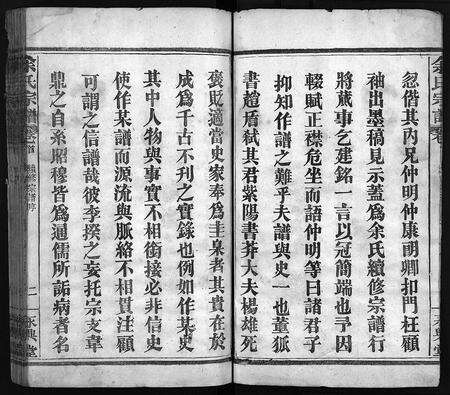 忽偕其內兄仲明仲康明卿扣門枉顧
袖出墨稿見示蓋為余氏續修宗譜行
將蕆事乞建銘一言以冠簡端也予因
輟賦正襟危坐而語仲明等曰諸君子
抑知作譜之難乎夫譜與史一也董狐
書趙盾弒其君紫陽書莽大夫楊雄死
褒貶適當史家奉為圭臬者其貴在於
成為千古不刊之實錄也例如作某史
其中人物與事實不相銜接必非信史
使作某譜而源流與脈絡不相貫注顧
可謂之信譜哉彼李揆之妄托宗支韋
鼎之自系昭穆皆為通儒所訴病者名
余氏宗譜
卷首
二
永興堂